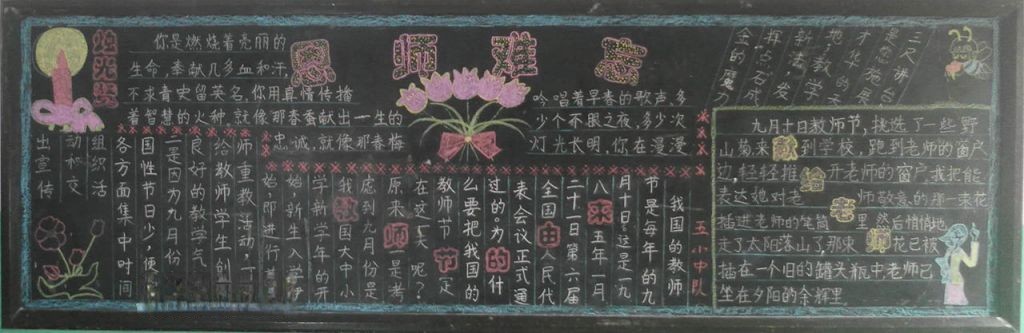 恩师难忘
烛光赞
你是燃烧着亮丽的
生命,奉献几多血和汗,
不求青史留英名,你用真情传播
着智慧的火种,就像那春蚕献出一生的
忠诚,就像那春梅
吟唱着早春的歌声,多
少个不眠之夜,多少次
灯光长明,你在漫漫
三尺讲台
是您施展
才华的天
地,教学
金的魔力
教师节的由来
五小中队
我国的教师
节是每年的九
月十日。这是一九
八五年一月
二十一日第六届
全国人民代
表会议正式通
过的。为什
么要把我国的
教师节定
在这一天呢?
原来是考
虑到九月份是
我国大中小
学新学年的开
始,新生入学伊
始,即进行尊
师重教活动,可
给教师学生创
良好的教学气
二是因为九月份
国性节日少,便
各方面集中时间
组织活
动和交
出宣传
献给老师
九月十日教师节,挑选了一些野
山菊来到学校,跑到老师的窗户
边,轻轻推开老师的窗户我把能
表达她对老师敬意的这一束花
插进老师的笔筒里然后悄悄地
走了太阳落山了那束花已被
插在一个旧的罐头瓶中老师已
坐在夕阳的余辉里